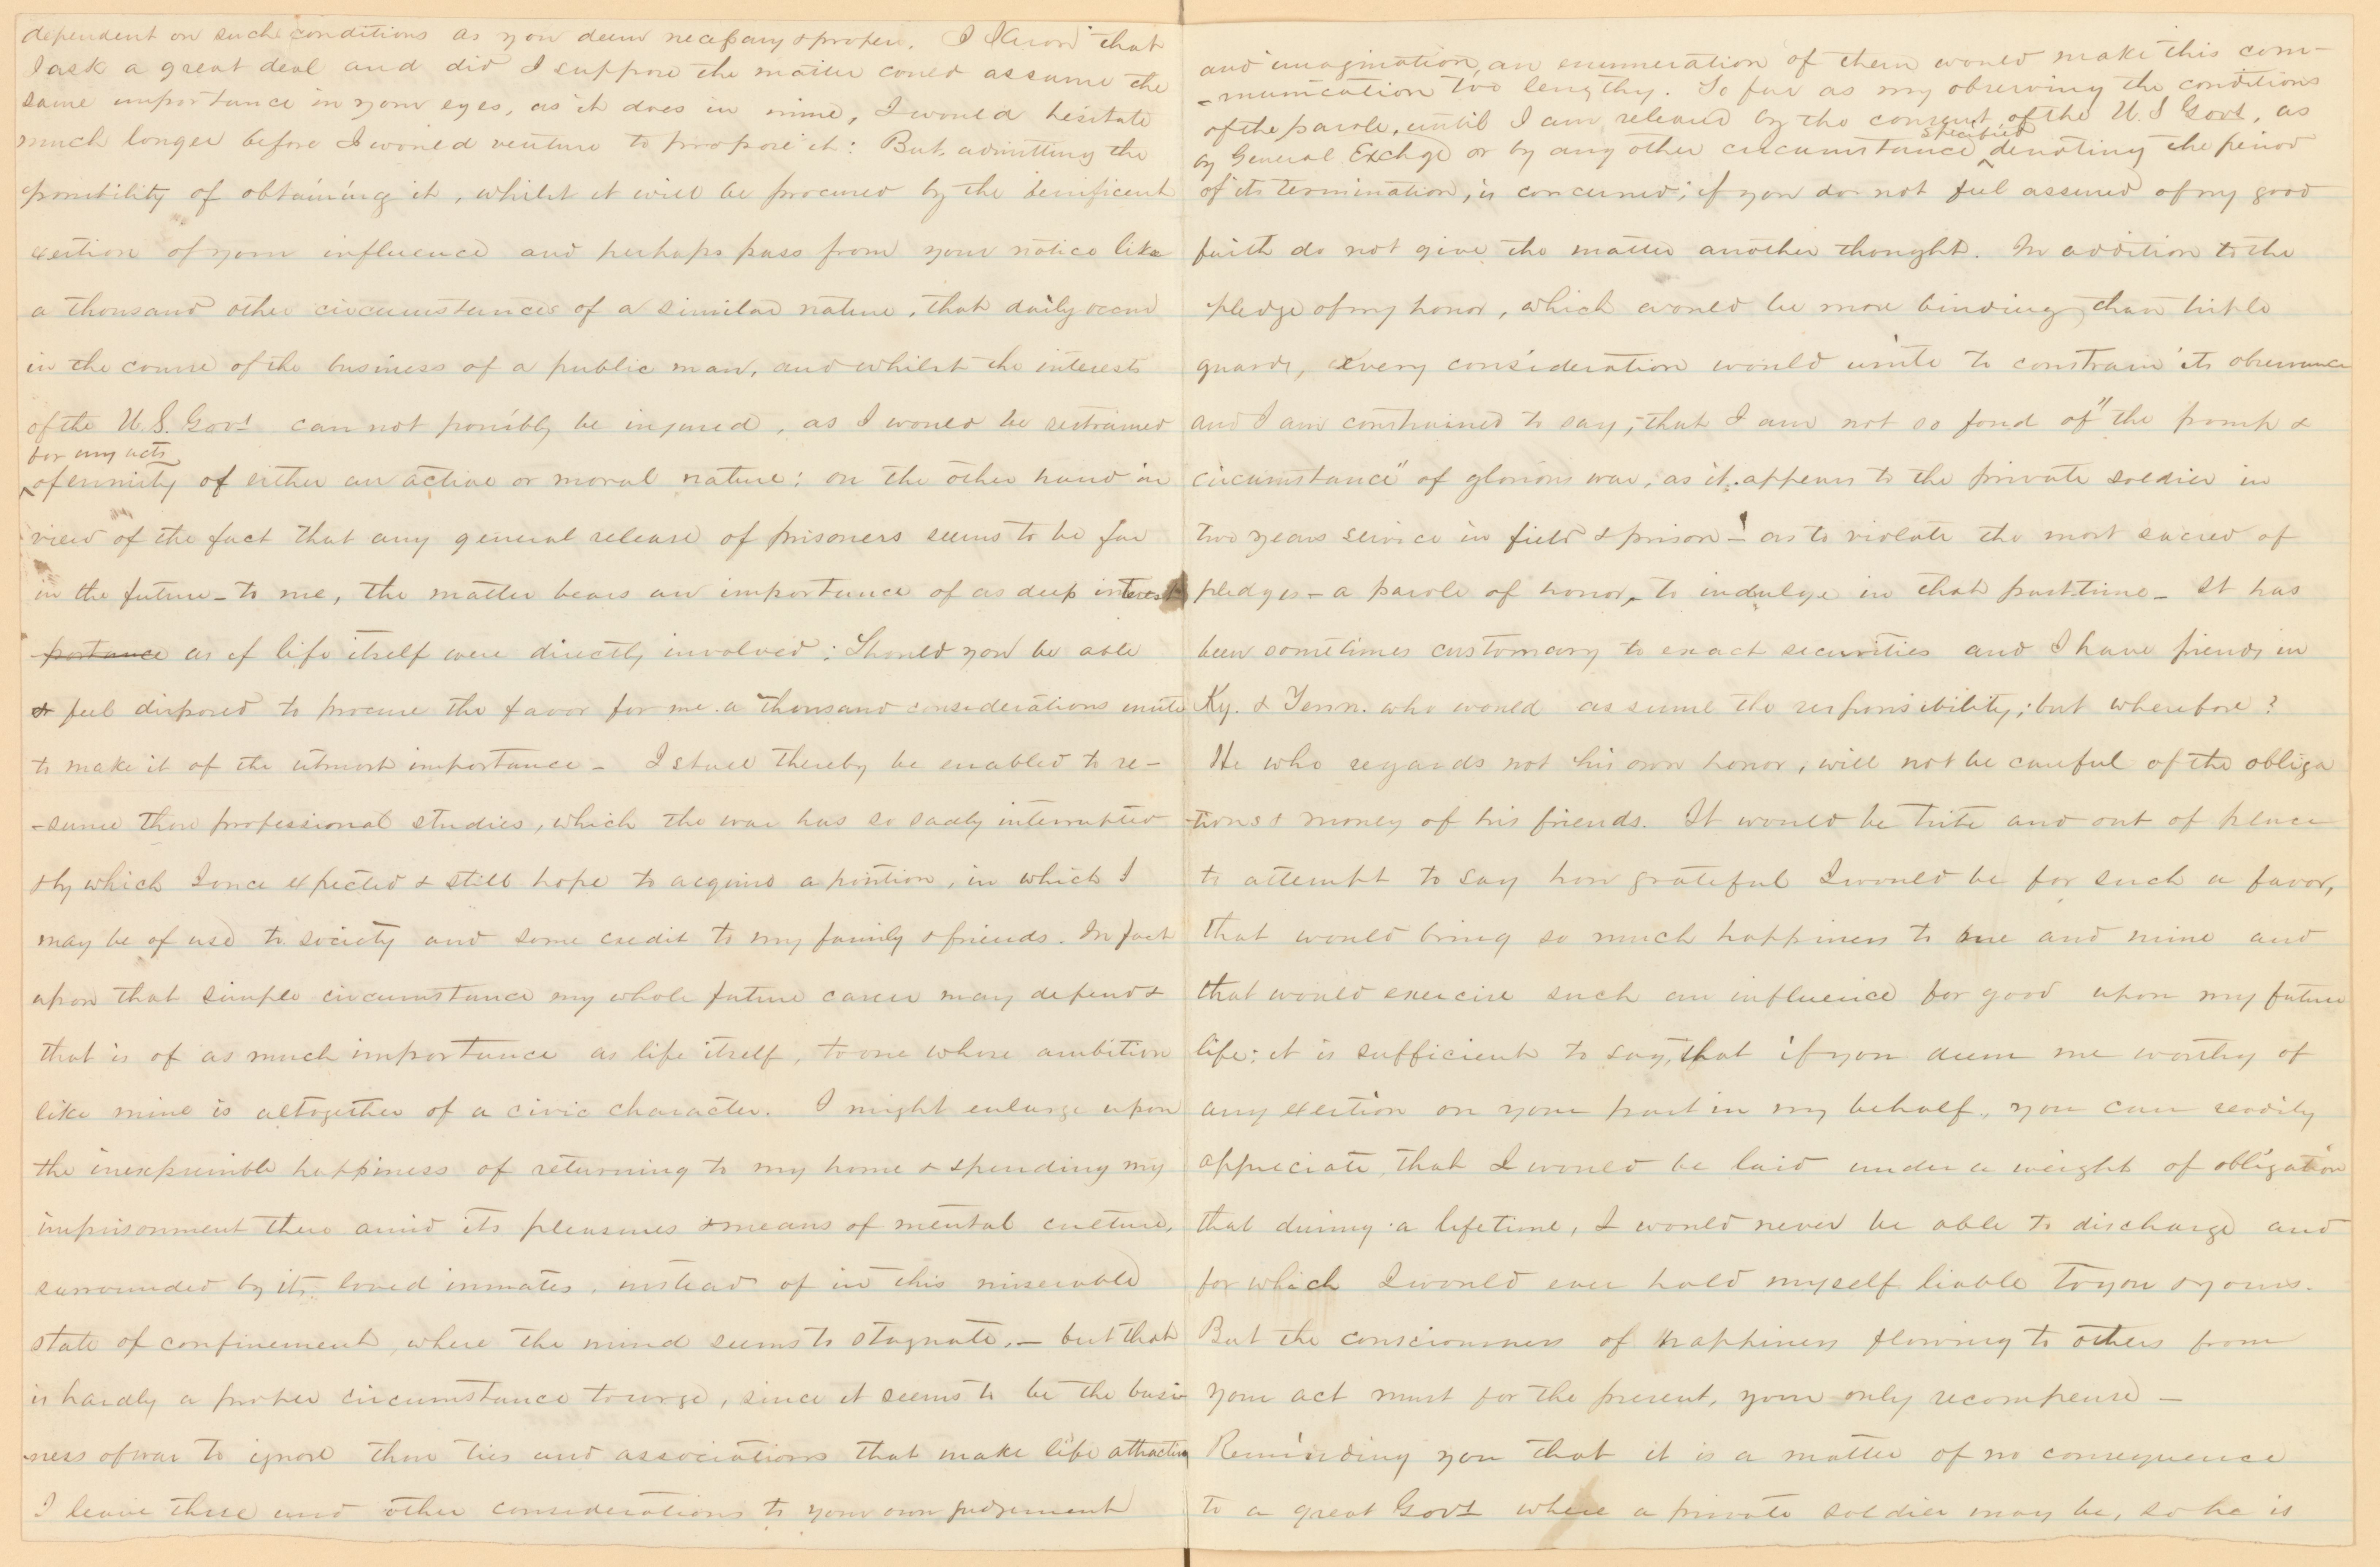 dependent on such conditions as you deem necessary & proper. I know that
I ask a great deal and did I suppose the matter could assume the
same importance in your eyes, as it does in mine, I would hesitate
much longer before I would venture to propose it: But, admitting the
possibility of obtaining it, whilst it will be procured by the beneficent
exertion of your influence and perhaps pass from your notice like
a thousand other circumstances of a similar nature, that daily occur
in the course of the business of a public man, and whilst the interests
of the U.S. Govt can not possibly be injured, as I would be restrained
for any acts
of enmity of either an active or moral nature: on the other hand in
view of the fact that any general release of prisoners seems to be far
in the future - to me, the matter bears an importance of as deep interest
portance as if life itself were directly involved: Should you be able
& feel disposed to procure the favor for me. a thousand considerations unite
to make it of the utmost importance - I shall thereby be enabled to re-
-sume those professional studies, which the war has so sadly interrupted
& by which I once expected & still hope to acquire a position, in which I
may be of use to society and some credit to my family & friends. In fact
upon that simple circumstance my whole future career may depend &
that is of as much importance as life itself, to one whose ambition
like mine is altogether of a civic character. I might enlarge upon
the inexpressible happiness of returning to my home & spending my
imprisonment there amid its pleasures & means of mental culture,
surrounded by its loved inmates, instead of in this miserable
state of confinement, where the mind seems to stagnate, - but that
is hardly a proper circumstance to urge, since it seems to be the busi-
ness of war to ignore those ties and associations that make life attractive
I leave these and other considerations to your own judgement
and imagination, an enumeration of them would make this com-
-munication too lengthy. So far as my observing the conditions
of the parole, until I am released by the consent of the U.S Govt, as
specified
by General Exchge or by any other circumstance denoting the period
of its termination, is concerned; if you do not feel assured of my good
faith do not give the matter another thought. In addition to the
pledge of my honor, which would be more binding than triple
guards, every consideration would unite to constrain its observance
and I am constrained to say, that I am not so fond of "the pomp &
circumstance" of glorious war, as it appears to the private soldier in
two years service in field & prison - as to violate the most sacred of
pledges - a parole of honor, to indulge in that pasttime - It has
been sometimes customary to exact securities and I have friends in
Ky. & Tenn. who would assume the responsibility; but wherefore?
He who regards not his own honor, will not be careful of the obliga
-tions & money of his friends. It would be trite and out of place
to attempt to say how grateful I would be for such a favor,
that would bring so much happiness to me and mine and
that would exercise such an influence for good upon my future
life: it is sufficient to say, that if you deem me worthy of
any exertion on your part in my behalf, you can readily
appreciate, that I would be laid under a weight of obligation
that during a lifetime, I would never be able to discharge and
for which I would ever hold myself liable to you & yours.
But the consciousness of happiness flowing to others from
your act must for the present, your only recompense -
Reminding you that it is a matter of no consequence
to a great Govt where a private soldier may be, so he is